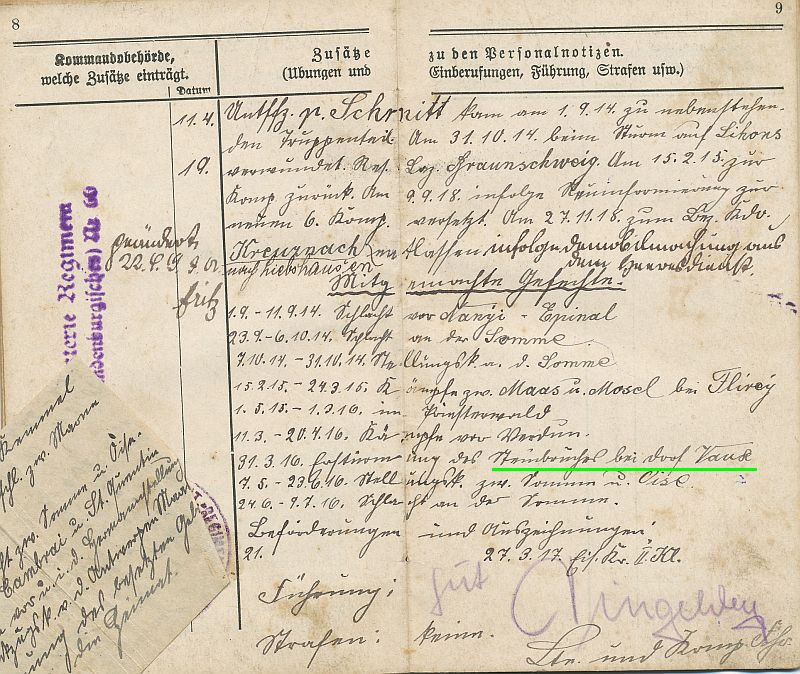 8
9
Kommandobehörde,
welche Zusätze einträgt.
Datum
Zusätze zu den Personalnotizen.
(Übungen und Einberufungen, Führung, Strafen usw.)
11.4. Untffz. p. Schmitt kam am 1.9.14 zu nebenstehen-
den Truppenteil. Am 31.10.14 beim Sturm auf Lihons
19. verwundet. Res. Laz. Braunschweig. Am 15.2.15. zur
Komp. zurück. Am 9.9.18. infolge Neuinformierung zur
neuen 6. Komp. versetzt. Am 27.11.18 zum Bez. Kdo.
Kreuznach entlassen infolge demobilmachung aus
nach Liebshausen dem Heeresdienst.
geändert
22.4.
Fritz
Mitgemachte Gefechte.
1.9. - 11.9.14. Schlacht vor Nanzi - Epinal
23.9. - 6.10.14. Schlacht an der Somme.
7.10.14. - 31.10.14 Stellungsk. a. d. Somme
15.2.15. - 24.3.15. Kämpfe zw. Maas u. Mosel bei Flirey
1.5.15. - 1.3.16. im Priesterwald
11.3. - 20.4.16. Kämpfe vor Verdun.
31.3.16. Erstürmung des Steinbruches bei dorf Vaux
7.5. - 23.6.16 Stellungsk. zw. Somme u. Oise
24.6. - 9.7.16. Schlacht an der Somme.
Beförderungen und Auszeichnungen:
21. 27.3.17. Eis. Kr. II. Kl.
Führung: gut
Strafen: keine.
Ltn. und Komp.
terie Regiment
ndenburgisches) Nr. 60
Kemmel
zw. Marne
zw. Somme u. Oise.
Cambrai u. St. Quentin
vor u. i. d. Hermannstellung
v. d. Antwerpen Maas
des besetzten Gebi
die Heimat.